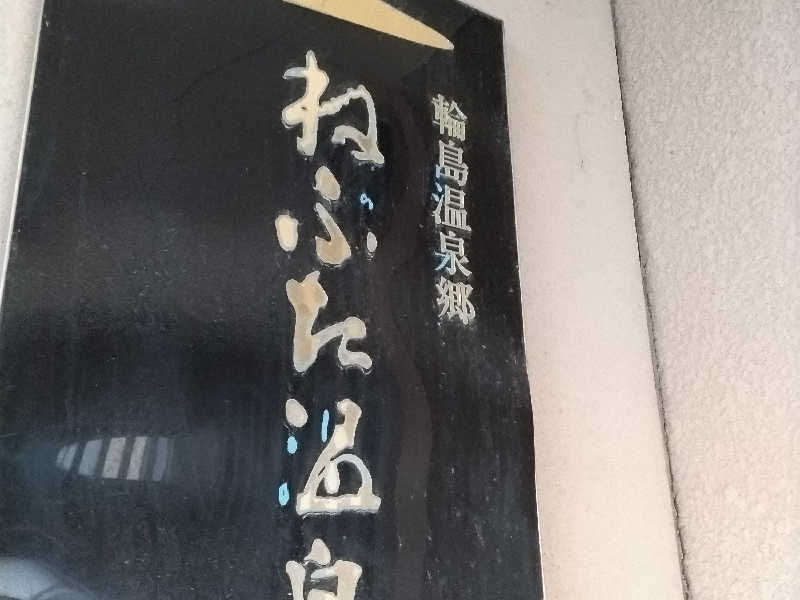 輪島温泉郷
ねぶた温泉